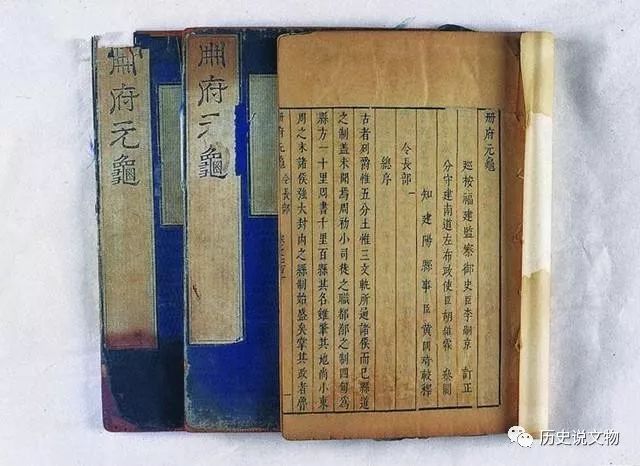 冊府元龜
冊府元龜
册府元龜
巡按福建監察御史臣李嗣京 訂正
分守建南道左布政使臣胡維霖 叅閱
知建陽縣事臣黃國琦較釋
令長部一
總序
古者列爵惟五分土惟三文軌所通諸侯而已縣道
之制蓋未聞焉周初小司徒之職都鄙之制四甸為
縣方二十里周書千里百縣其名雖肇其地尚小東
周之末諸侯強大封内之縣制始盛矣掌其政者魯
册府元龜 令長部
历史说文物